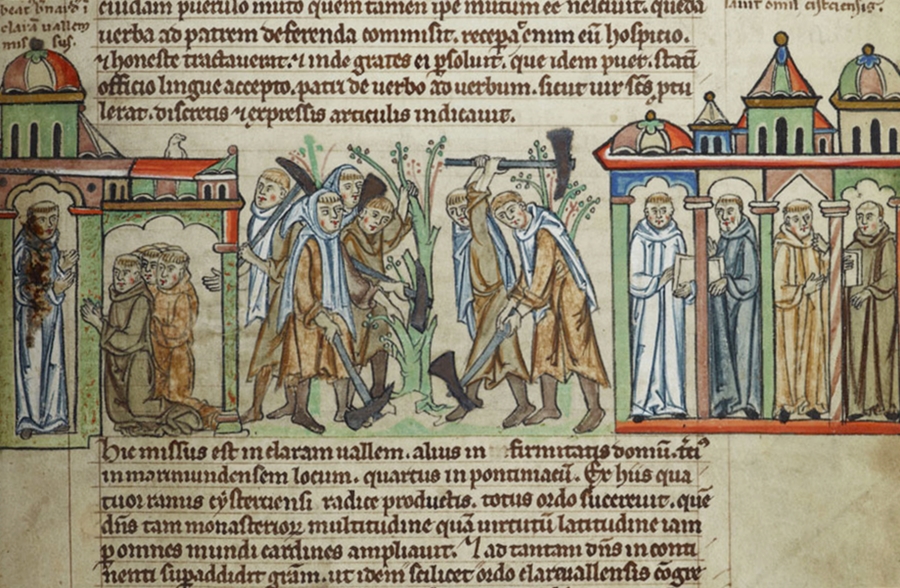 beat' b̄nard'
clarā uallem
mis sus.
cuidam puerulo muto quem tamen ipē mutum eē nesciuit. quedā
uerba ad patrem deferenda commisit. recepat enim eū hospicio.
⁊ honeste tractauerat. ⁊ inde grates ei ꝑsoluit. que idem puer. statī
officio lingue accepto. patri de uerbo ad uerbum. sicut uir sc̄s ptu
lerat. discretis ⁊ expressis articulis indicauit.
Hic missus est in claram uallem. alius in firmitatis domū. t̄ti'
in marimundensem locum. quartus in pontiniacū. Ex hiis qua
tuor ramis cysterciensi radice productis. totus ordo succreuit. quē
dn̄s tam monasterioꝝ multitudine quā uirtutū latitudine iam
ꝑ omnes mundi cardines ampliauit. ⁊ ad tantam dn̄s in conti
nenti supaddidit grām. ut idem scilicet ordo clareuallensis cōgre